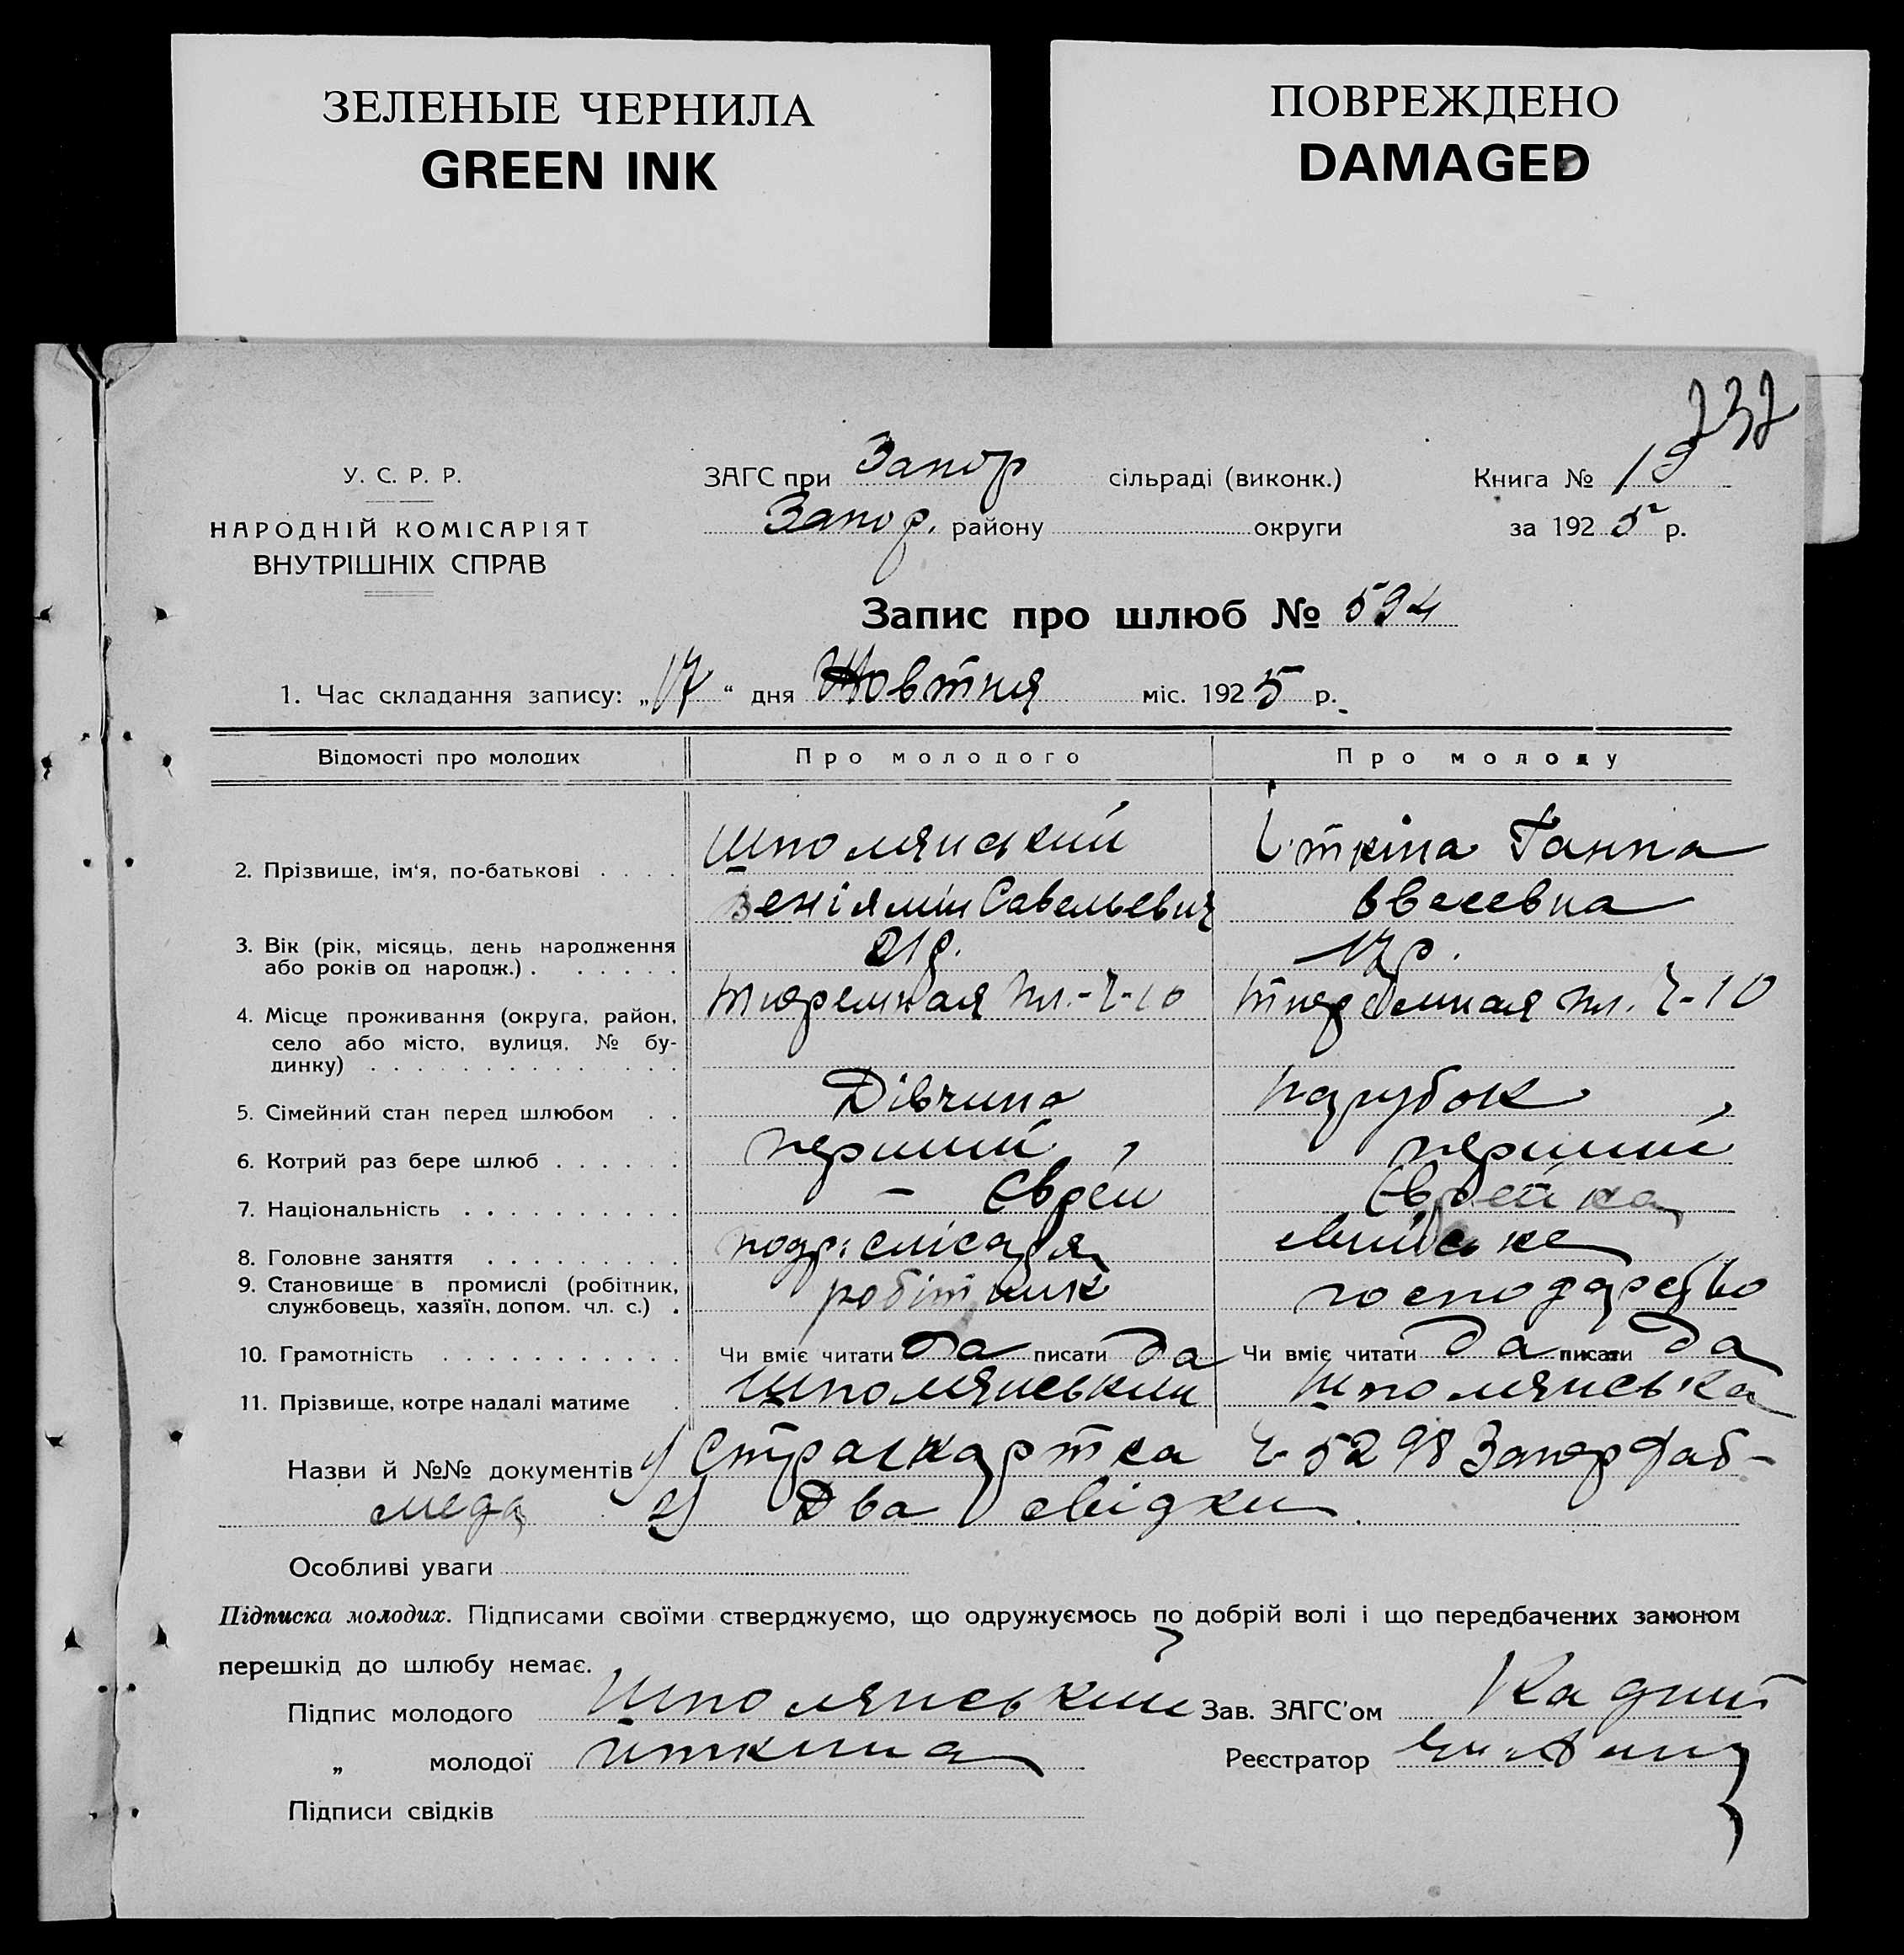 ЗЕЛЕНЫЕ ЧЕРНИЛА
GREEN INK
ПОВРЕЖДЕНО
DAMAGED
232
У. С. Р. Р.
НАРОДНІЙ КОМІСАРІЯТ
ВНУТРІШНІХ СПРАВ
ЗАГС при Запор сільраді (виконк.)
Запор. району округи
Книга № 19
за 1925 р.
Запис про шлюб № 594
1. Час складання запису: „17“ дня Жовтня міс. 1925 р.
Відомості про молодих Про молодого Про молоду
2. Прізвище, ім‘я, по-батькові Шполянский Іткіна Ганна
Веніямін Савельевич Овсеевна
3. Вік (рік, місяць, день народження або років од народж.) 21 р. 17 р.
4. Місце проживання (округа, район, село або місто, вулиця, № будинку) Тюремная пл.-Ч-10 Тюремная пл. Ч-10
5. Сімейний стан перед шлюбом Дівчина парубок
6. Котрий раз бере шлюб перший перший
7. Національність – Єврей Єврейка
8. Головне заняття свійське
9. Становище в промислі (робітник, службовець, хазяїн, допом. чл. с.) робітник господарство
10. Грамотність Чи вміє читати да писати да Чи вміє читати да писати да
11. Прізвище, котре надалі матиме Шполянський Шполянська
Назви й №№ документів 1) Страхкартка Ч-5298 Запор
2) Два свідки
Особливі уваги
Підписка молодих. Підписами своїми стверджуємо, що одружуємось по добрій волі і що передбачених законом
перешкід до шлюбу немає.
Підпис молодого Шполянський Зав. ЗАГС’ом
„ молодої Иткина Реєстратор
Підписи свідків